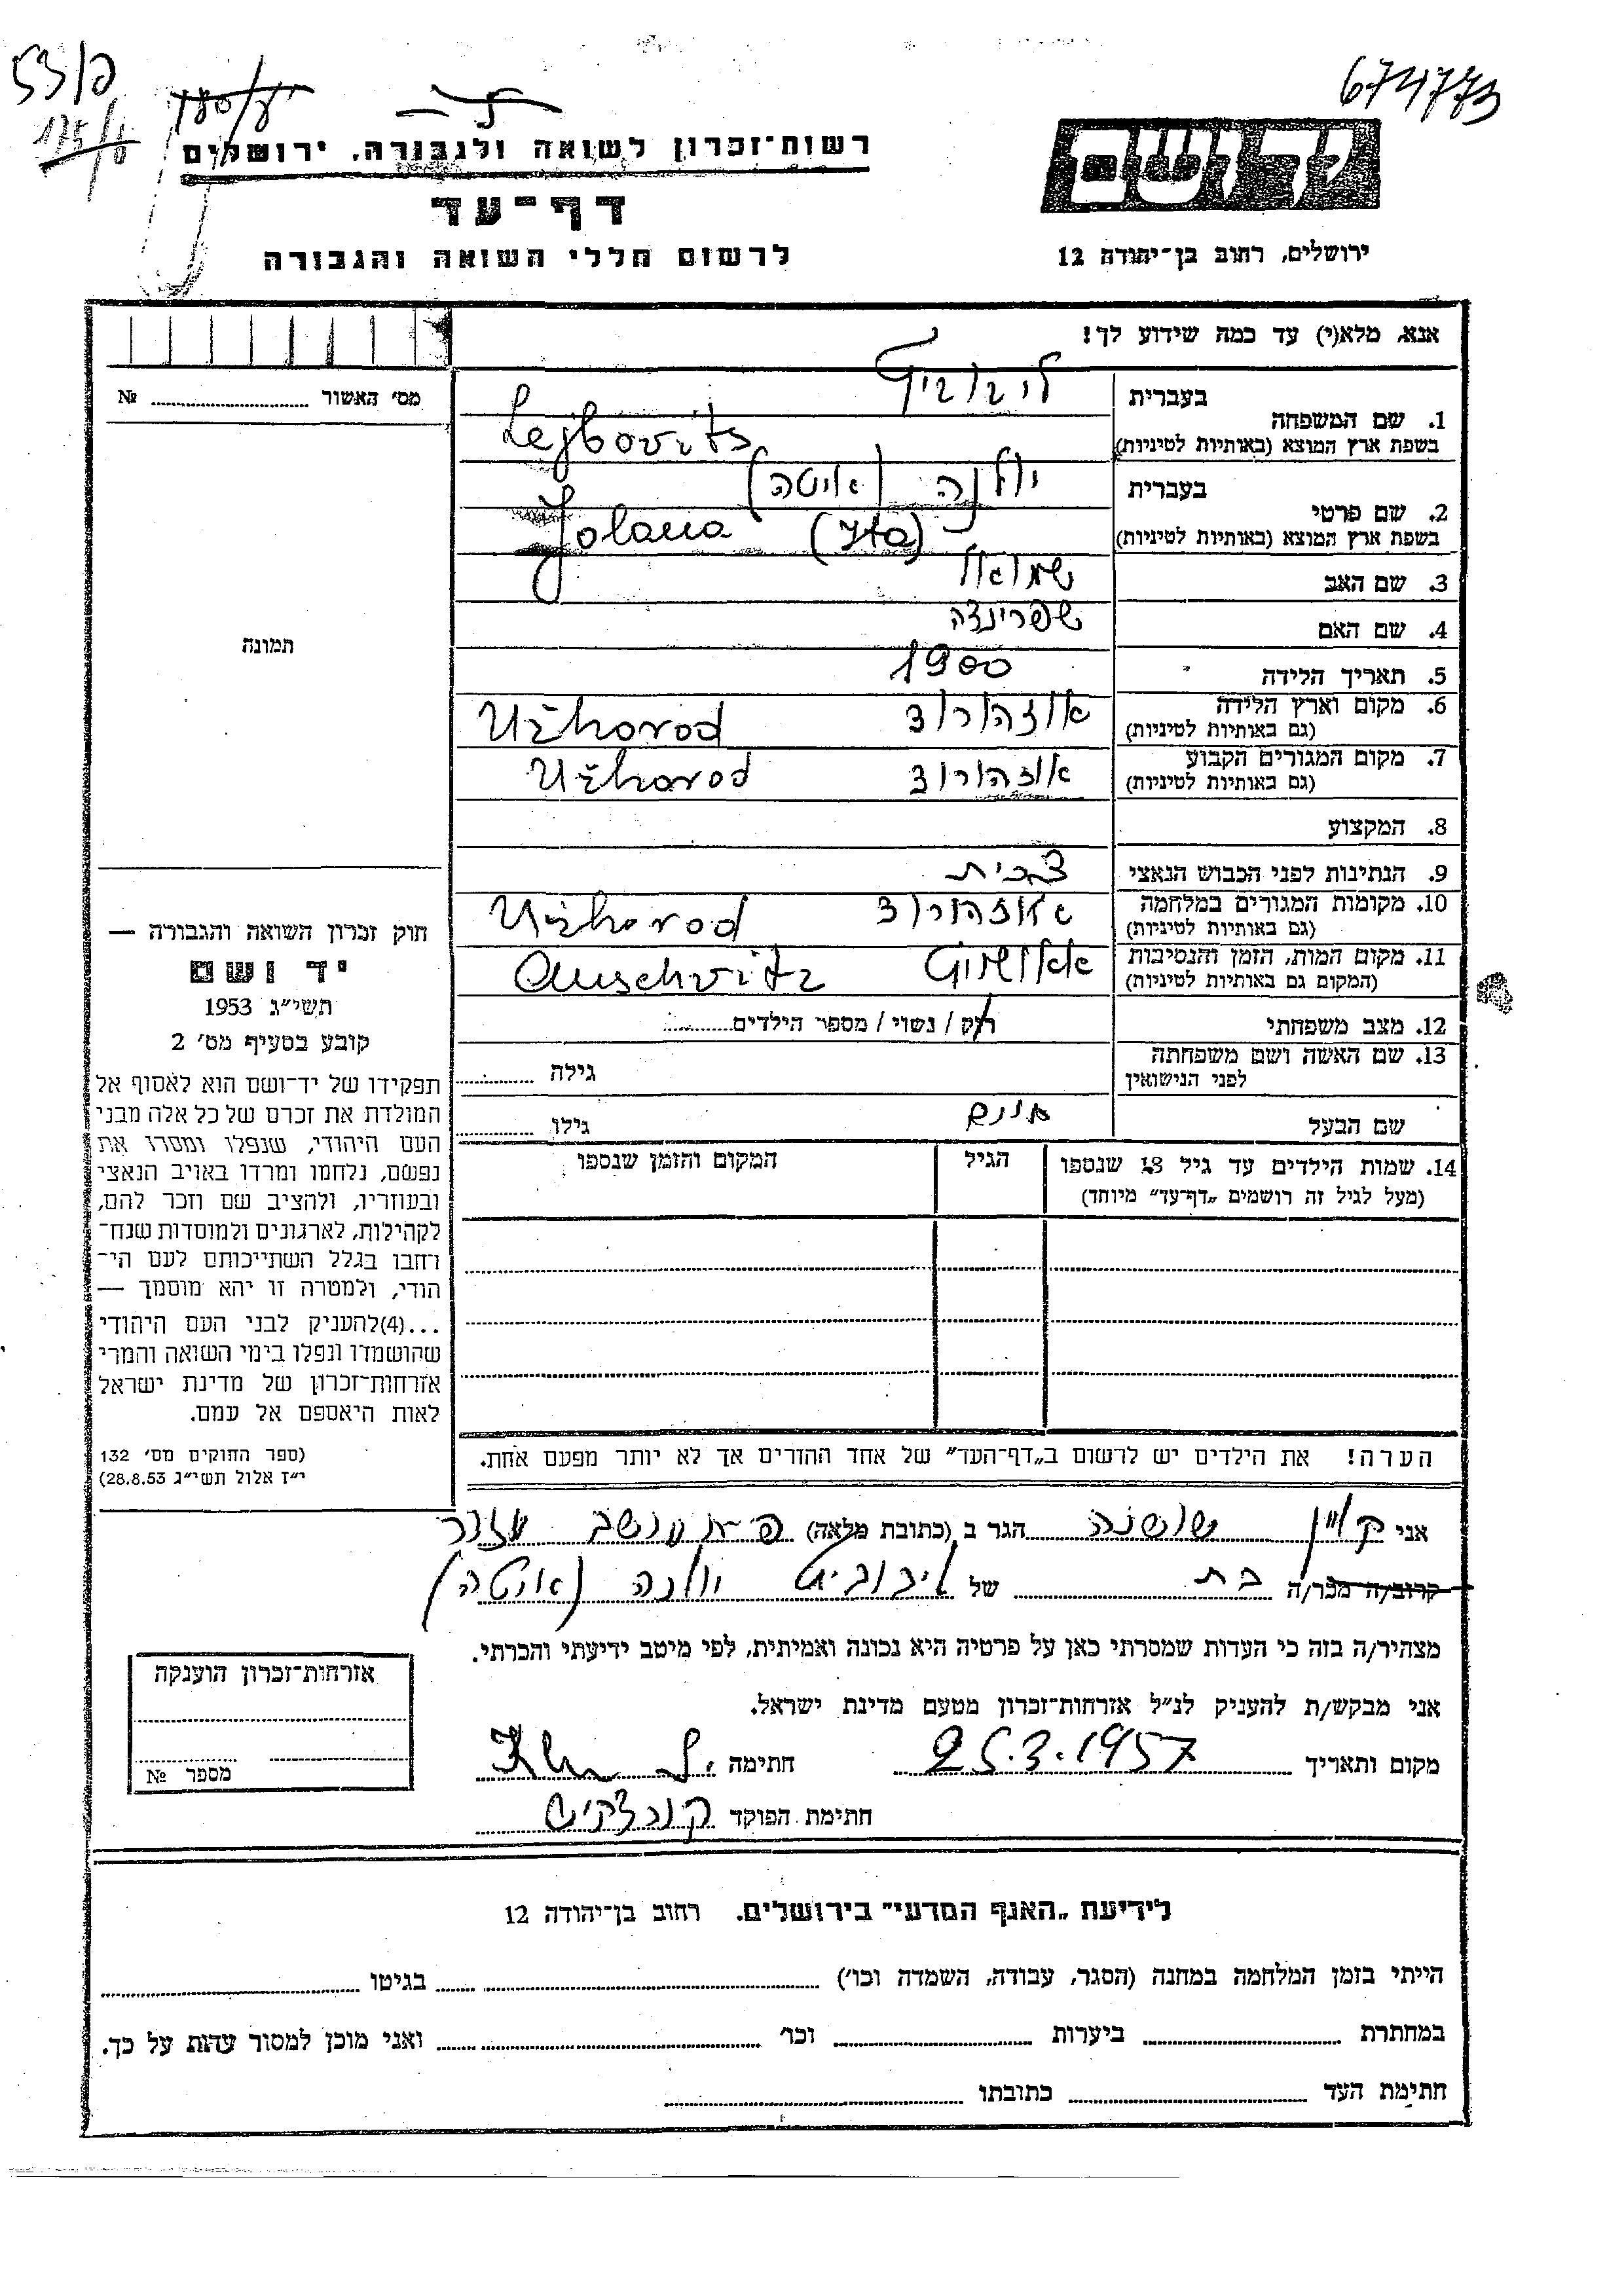 674773
53/פ
רשות־זכרון לשואה ולגבורה, ירושלים
דף־עד
לרשום חללי השואה והגבורה
יד ושם
ירושלים, רחוב בן־יהודה 12
אנא, מלא(י) עד כמה שידוע לך!
מס׳ האשור № 
1. שם המשפחה
בעברית ליבוביץ
בשפת ארץ המוצא (באותיות לטיניות) Lejbovits
2. שם פרטי
בעברית יולנה (איטה)
בשפת ארץ המוצא (באותיות לטיניות) Jolana (Ita)
3. שם האב שמואל
4. שם האם שפרינצה
5. תאריך הלידה 1900
6. מקום וארץ הלידה אוזהורוד Užhorod
(גם באותיות לטיניות)
7. מקום המגורים הקבוע אוזהורוד Užhorod
(גם באותיות לטיניות)
8. המקצוע
9. הנתינות לפני הכבוש הנאצי צ׳כית
10. מקומות המגורים במלחמה אוזהורוד Užhorod
(גם באותיות לטיניות)
11. מקום המות, הזמן והנסיבות אאושויץ Auschvitz
(המקום גם באותיות לטיניות)
12. מצב משפחתי רוק / נשוי / מספר הילדים
13. שם האשה ושם משפחתה
לפני הנישואין גילה
שם הבעל גילו
14. שמות הילדים עד גיל 18 שנספו הגיל המקום והזמן שנספו
(מעל לגיל זה רושמים „דף־עד״ מיוחד)
הערה! את הילדים יש לרשום ב„דף־העד״ של אחד ההורים אך לא יותר מפעם אחת.
תמונה
חוק זכרון השואה והגבורה —
יד ושם
תשי״ג 1953
קובע בסעיף מס׳ 2
תפקידו של יד־ושם הוא לאסוף אל
המולדת את זכרם של כל אלה מבני
העם היהודי, שנפלו ומסרו את
נפשם, נלחמו ומרדו באויב הנאצי
ובעוזריו, ולהציב שם וזכר להם,
לקהילות, לארגונים ולמוסדות שנח־
רבו בגלל השתייכותם לעם הי־
הודי, ולמטרה זו יהא מוסמך —
...(4)להעניק לבני העם היהודי
שהושמדו ונפלו בימי השואה והמרי
אזרחות־זכרון של מדינת ישראל
לאות היאספם אל עמם.
(ספר החוקים מס׳ 132
י״ז אלול תשי״ג 28.8.53)
אני קליין שושנה הגר ב (כתובת מלאה) מושב עזר
קרוב/ה מכר/ה בת של ליבוביץ יולנה (איטה)
מצהיר/ה בזה כי העדות שמסרתי כאן על פרטיה היא נכונה ואמיתית, לפי מיטב ידיעתי והכרתי.
אני מבקש/ת להעניק לנ״ל אזרחות־זכרון מטעם מדינת ישראל.
מקום ותאריך 25.3.1957 חתימה
חתימת הפוקד
אזרחות־זכרון הוענקה
מספר №
לידיעת „האגף המדעי״ בירושלים. רחוב בן־יהודה 12
הייתי בזמן המלחמה במחנה (הסגר, עבודה, השמדה וכו׳) בגיטו
במחתרת ביערות וכו׳ ואני מוכן למסור עדות על כך.
חתימת העד כתובתו